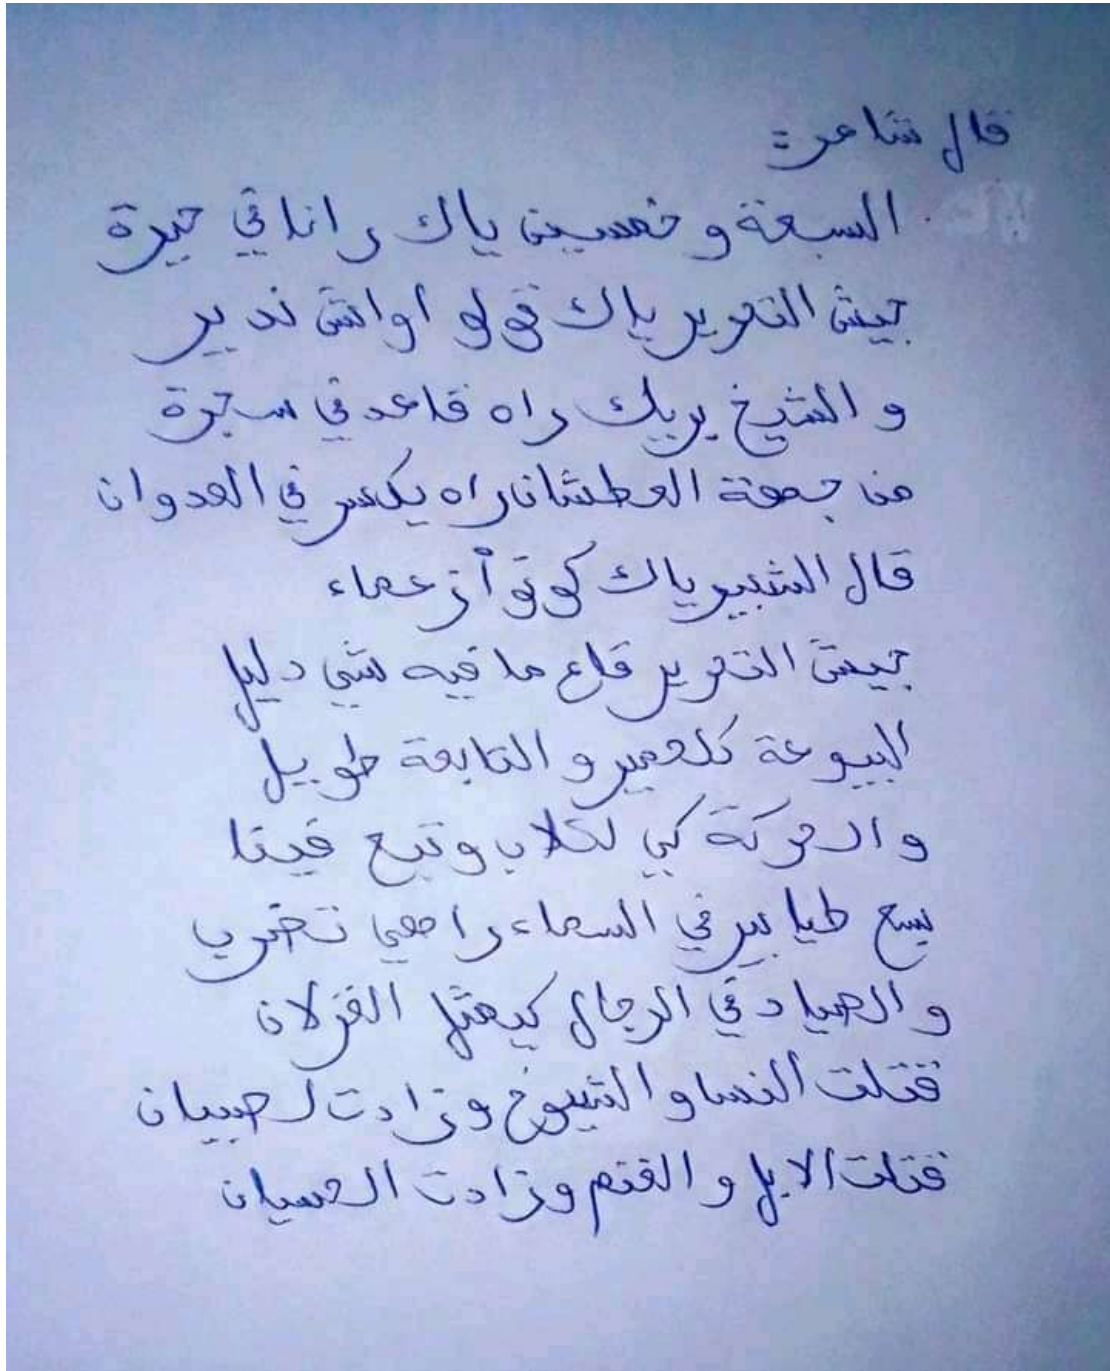 قال شاعر:
السبعة و خمسين ياك رانا في حيرة
جيش التحرير ياك قولو اواش ندير
و الشيخ بريك راه قاعد في سجرة
من جهة العطشان راه يكسر في العدوان
قال الشبير ياك كونو أزعماء
جيش التحرير قاع ما فيه شي دليل
البيوعة كلحمير و التابعة طويل
و الحركة كي لكلاب وتبع فينا
سبع طيايير في السماء راهي تضرب
و الصياد في الرجال كيمثل الغزلان
قتلت النسا و الشيوخ وزادت لصبيان
قتلت الابل و الغنم وزادت الحسيان